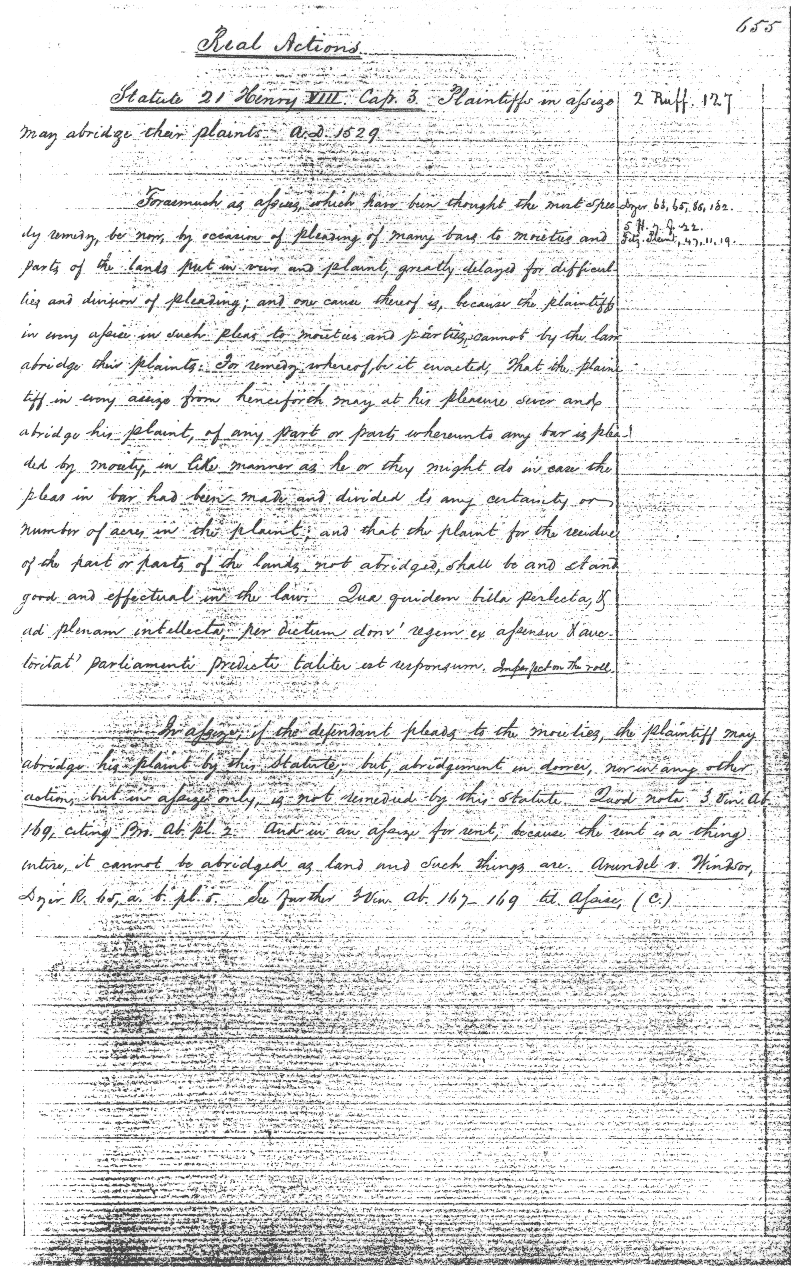 655
Real Actions
Statute 21 Henry VIII. Cap. 3. Plaintiffs in assize
2 Ruff. 127
may abridge their plaints. A.D. 1529
Forasmuch as assizes, which have been thought the most spee
Dyer 63, 65, 85, 132.
dy remedy, be now, by occasion of pleading of many bars to moieties and
parts of the lands put in view and plaint, greatly delayed for difficul-
ties and division of pleading; and one cause thereof is, because the plaintiff
in every assize in such pleas to moieties and parties, cannot by the law
abridge their plaints: For remedy whereof, be it enacted, That the plain
tiff in every assize from henceforth may at his pleasure sever and
abridge his plaint, of any part or parts whereunto any bar is plea
ded by moiety, in like manner as he or they might do in case the
pleas in bar had been made and divided to any certainty or
number of acres in the plaint; and that the plaint for the residue
of the part or parts of the lands not abridged, shall be and stand
good and effectual in the law. Qua quidem billa perlecta, &
ad plenam intellecta, per dictum dom' regem ex assensu & auc-
toritat' parliamenti predicti taliter est responsum. Imperfect on the roll.
In assize, if the defendant pleads to the moieties, the plaintiff may
abridge his plaint by this Statute; but, abridgement in dower, nor in any other
action, but in assize only, is not remedied by this Statute. Quod nota. 3 Vin. Ab.
169, citing Bro. Ab. pl. 2. And in an assize for rent, because the rent is a thing
entire, it cannot be abridged as land and such things are. Arundel v. Windsor,
Dyer R. 65, a. b. pl. 5. See further 3 Vin. Ab. 167-169 tit. Assise, (C.)